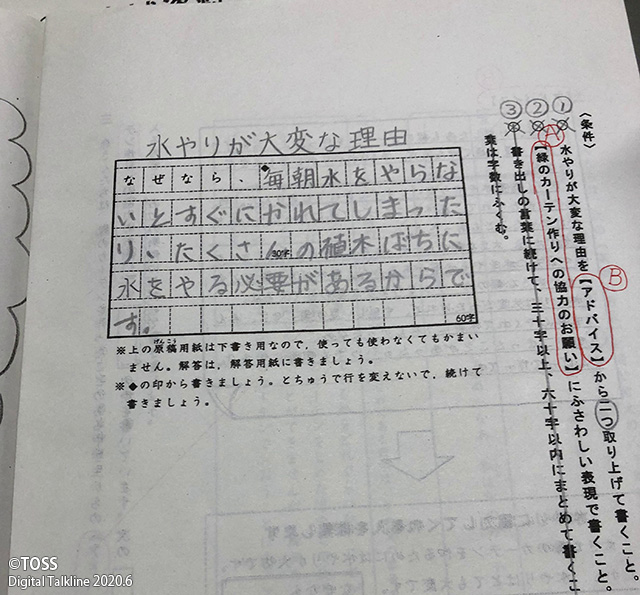 〈条件〉
① 水やりが大変な理由を【アドバイス】から二つ取り上げて書くこと。
B
② 【緑のカーテン作りへの協力のお願い】にふさわしい表現で書くこと。
A
③ 書き出しの言葉に続けて、三十字以上、六十字以内にまとめて書くこ
葉は字数にふくむ。
水やりが大変な理由
なぜなら、◆毎朝水をやらな
いとすぐにかれてしまった
り、たくさん30字の植木ばちに
水をやる必要があるからで
す。
60字
※上の原稿用紙は下書き用なので、使っても使わなくてもかまい
げんこう
ません。解答は、解答用紙に書きましょう。
※◆の印から書きましょう。とちゅうで行を変えないで、続けて
書きましょう。
©TOSS
Digital Talkline 2020.6